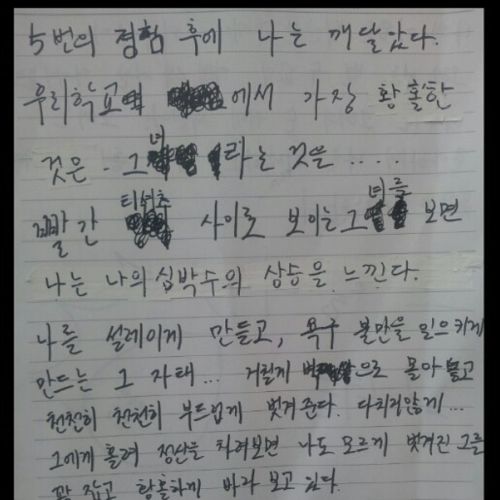 5번의 경험 후에 나는 깨달았다.
우리학교 에서 가장 황홀한
것은 - 그녀라는 것을 ....
빨간 티셔츠 사이로 보이는 그녀를 보면
나는 나의 심박수의 상승을 느낀다.
나를 설레이게 만들고, 욕구 불만을 일으키게
만드는 그 자태... 거칠게 벽으로 몰아 놓고
천천히 천천히 부드럽게 벗겨준다. 다치지않게...
그에게 홀려 정신을 차려보면 나도 모르게 벗겨진 그를
꽉 잡고 황홀하게 바라 보고 있다.